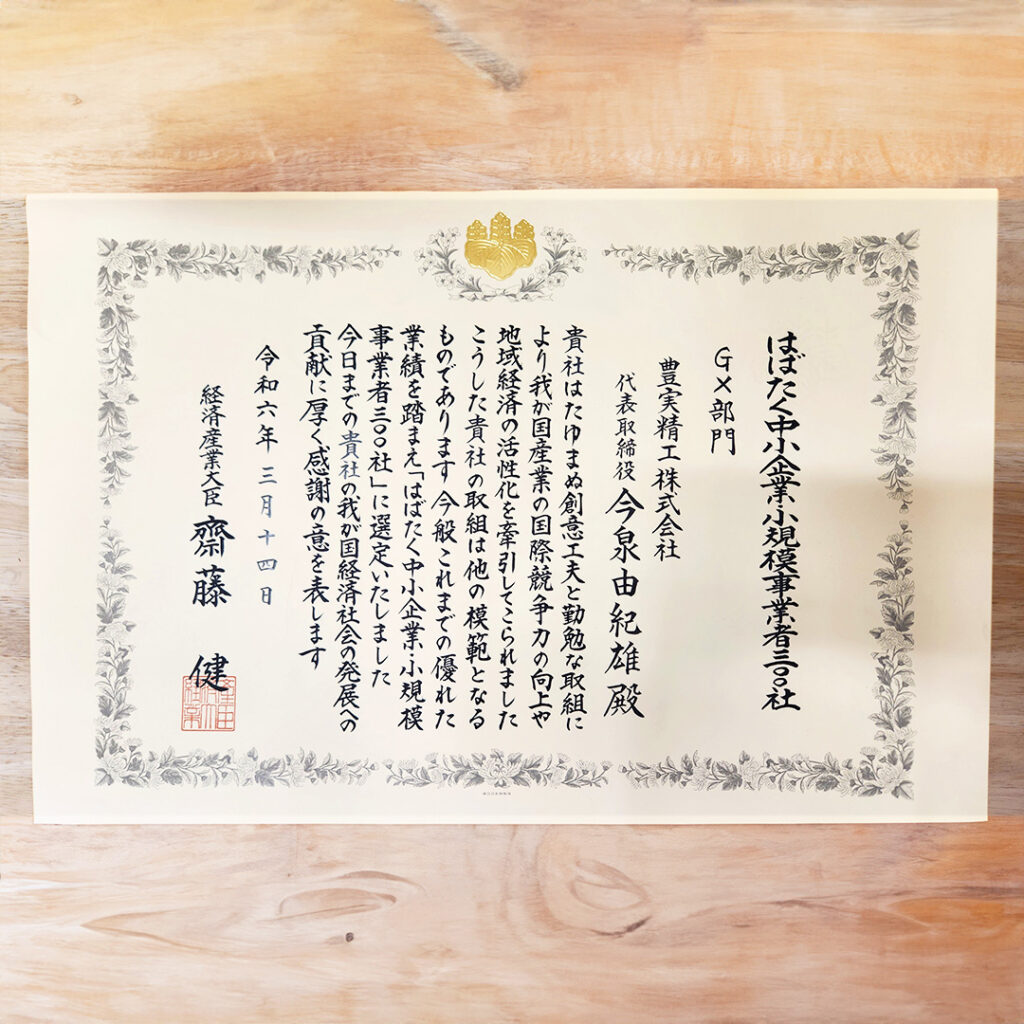 はばたく中小企業・小規模事業者三〇〇社
GX部門
豊実精工株式会社
代表取締役 今泉由紀雄 殿
貴社はたゆまぬ創意工夫と勤勉な取組に
より我が国産業の国際競争力の向上や
地域経済の活性化を牽引してこられました
こうした貴社の取組は他の模範となる
ものであります 今般これまでの優れた
業績を踏まえ「はばたく中小企業・小規模
事業者三〇〇社」に選定いたしました
今日までの貴社の我が国経済社会の発展への
貢献に厚く感謝の意を表します
令和六年三月十四日
経済産業大臣 齋藤 健